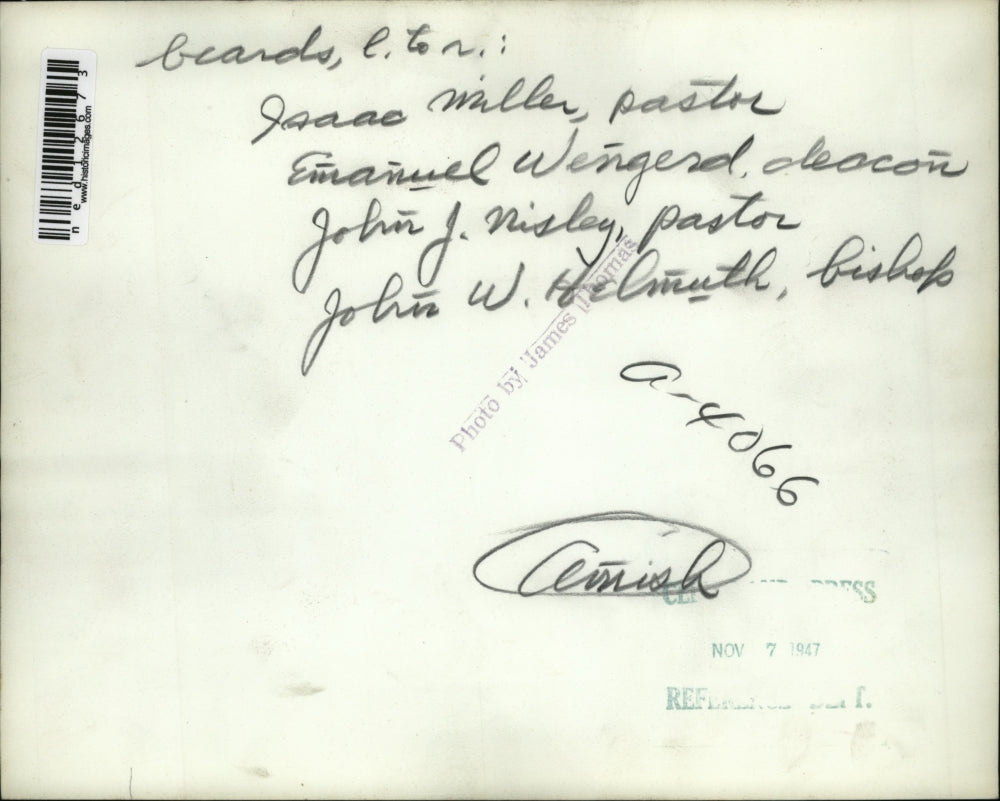 beards, l. to r.:
Isaac Miller, pastor
Emanuel Wengerd, deacon
John J. Nisley, pastor
John W. Helmuth, bishop
Photo by James Thomas
a-4066
Amish
PRESS
NOV 7 1947
ned126673
www.historicimages.com